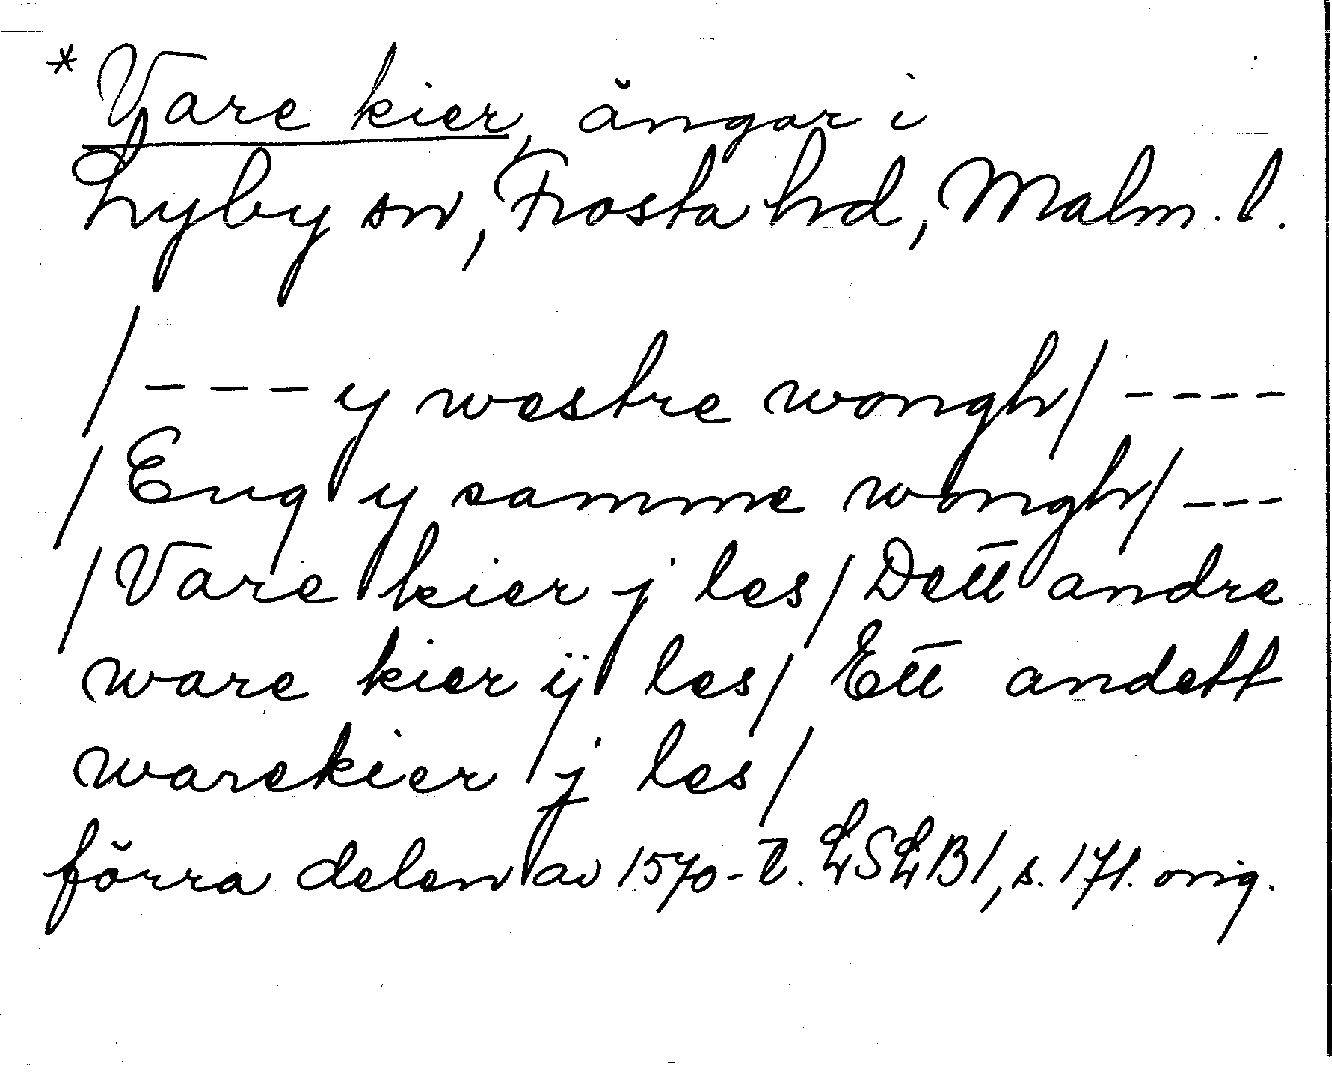 * Vare kier, ängar i
Lyby sn, Frosta hd, Malm. l.
/ - - - y westre wongh/ - - - -
/ Eng y samme wongh/ - - -
/ Vare kier j les/ Dett andre
ware kier ij les/ Ett andett
warekier j les/
förra delen av 1570-t. LSLB1, s. 171. orig.